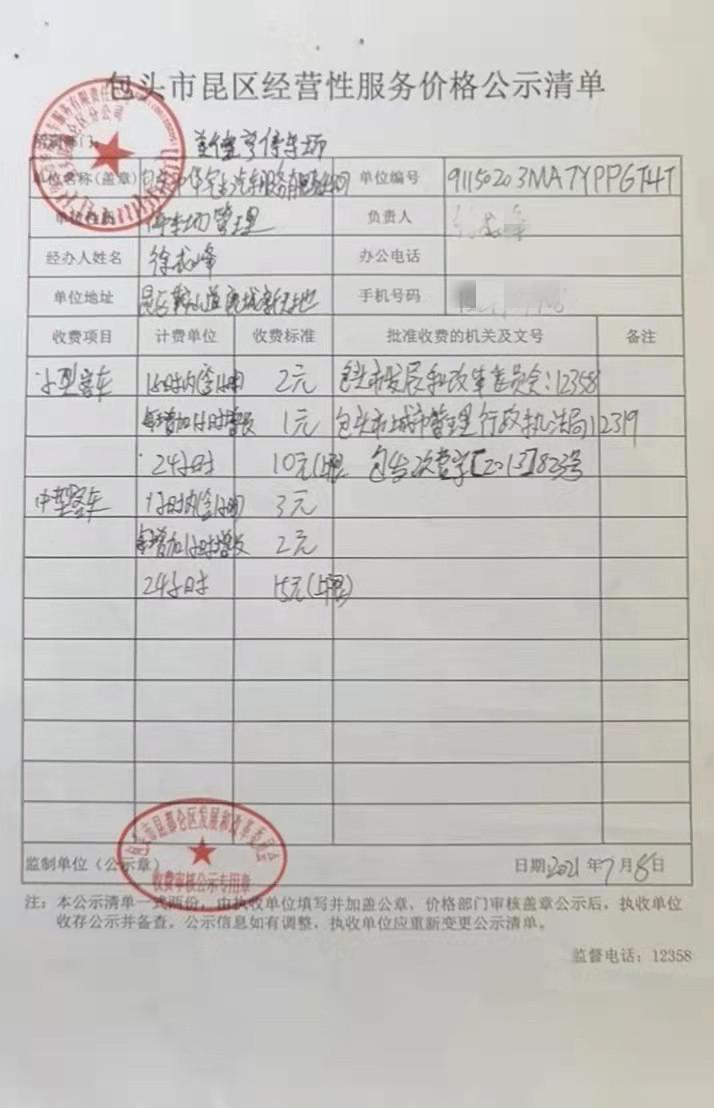 包头市昆区经营性服务价格公示清单
美德亨停车场
单位名称(盖章) 单位编号 91150203MA7YPPGT4T
停车场管理 负责人
经办人姓名 徐成峰 办公电话
单位地址 手机号码
收费项目 计费单位 收费标准 批准收费的机关及文号 备注
小型客车 1小时内(含1小时) 2元 包头市发展和改革委员会:12358
每增加1小时增收 1元 包头市城市管理行政执法局12319
24小时 10元(上限)
中型客车 1小时内(含1小时) 3元
每增加1小时增收 2元
24小时 15元(上限)
包头市昆都仑区发展和改革委员会
收费审核公示专用章
监制单位(公示章) 日期:2021年7月8日
注:本公示清单一式两份,由执收单位填写并加盖公章,价格部门审核盖章公示后,执收单位
收存公示并备查。公示信息如有调整,执收单位应重新变更公示清单。
监督电话:12358